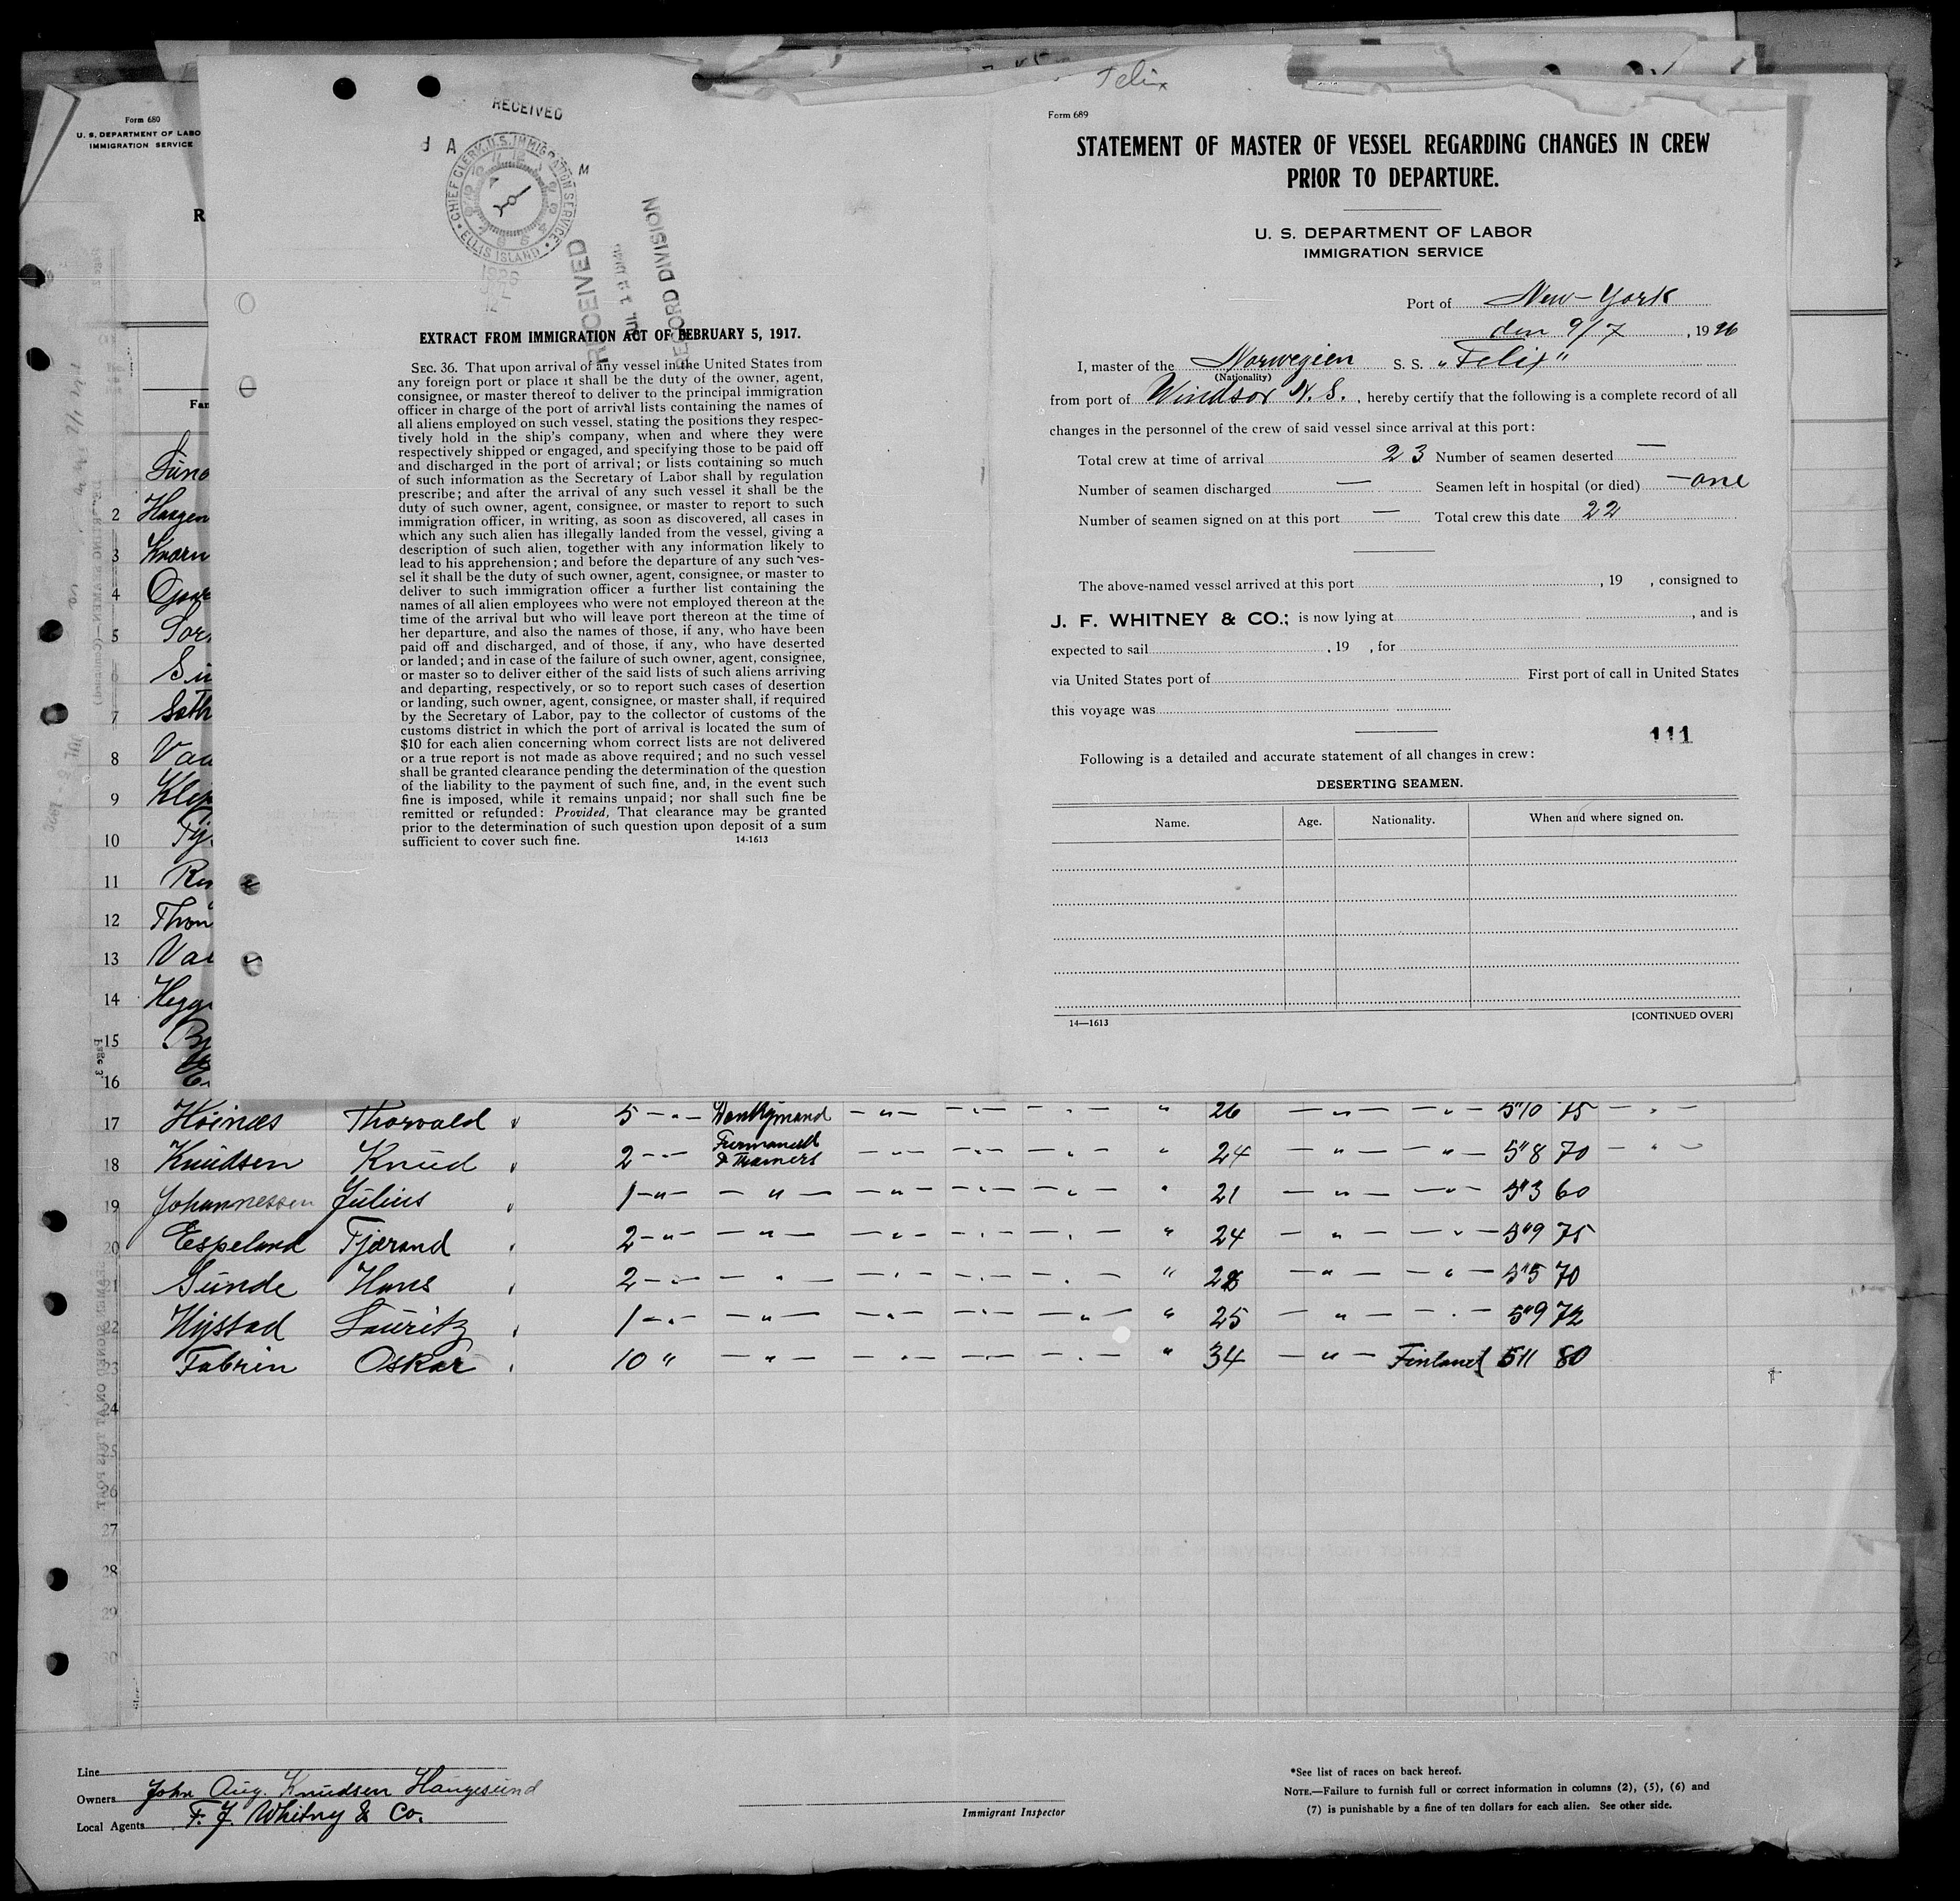 Felix
Form 680
U. S. DEPARTMENT OF LABO
IMMIGRATION SERVICE
R
Fan
RECEIVED
CHIEF CLERK, U.S. IMMIGRATION SERVICE
ELLIS ISLAND
1926
RECEIVED
RECORD DIVISION
EXTRACT FROM IMMIGRATION ACT OF FEBRUARY 5, 1917.
SEC. 36. That upon arrival of any vessel in the United States from
any foreign port or place it shall be the duty of the owner, agent,
consignee, or master thereof to deliver to the principal immigration
officer in charge of the port of arrival lists containing the names of
all aliens employed on such vessel, stating the positions they respec-
tively hold in the ship's company, when and where they were
respectively shipped or engaged, and specifying those to be paid off
and discharged in the port of arrival; or lists containing so much
of such information as the Secretary of Labor shall by regulation
prescribe; and after the arrival of any such vessel it shall be the
duty of such owner, agent, consignee, or master to report to such
immigration officer, in writing, as soon as discovered, all cases in
which any such alien has illegally landed from the vessel, giving a
description of such alien, together with any information likely to
lead to his apprehension; and before the departure of any such ves-
sel it shall be the duty of such owner, agent, consignee, or master to
deliver to such immigration officer a further list containing the
names of all alien employees who were not employed thereon at the
time of the arrival but who will leave port thereon at the time of
her departure, and also the names of those, if any, who have been
paid off and discharged, and of those, if any, who have deserted
or landed; and in case of the failure of such owner, agent, consignee,
or master so to deliver either of the said lists of such aliens arriving
and departing, respectively, or so to report such cases of desertion
or landing, such owner, agent, consignee, or master shall, if required
by the Secretary of Labor, pay to the collector of customs of the
customs district in which the port of arrival is located the sum of
$10 for each alien concerning whom correct lists are not delivered
or a true report is not made as above required; and no such vessel
shall be granted clearance pending the determination of the question
of the liability to the payment of such fine, and, in the event such
fine is imposed, while it remains unpaid; nor shall such fine be
remitted or refunded: Provided, That clearance may be granted
prior to the determination of such question upon deposit of a sum
sufficient to cover such fine. 14-1613
Form 689
STATEMENT OF MASTER OF VESSEL REGARDING CHANGES IN CREW
PRIOR TO DEPARTURE.
U. S. DEPARTMENT OF LABOR
IMMIGRATION SERVICE
Port of New-York
den 9/7, 1926
I, master of the Norwegien S. S. "Felix"
(Nationality)
from port of Windsor N. S., hereby certify that the following is a complete record of all
changes in the personnel of the crew of said vessel since arrival at this port:
Total crew at time of arrival 23 Number of seamen deserted —
Number of seamen discharged — Seamen left in hospital (or died) —one
Number of seamen signed on at this port — Total crew this date 22
The above-named vessel arrived at this port , 19 , consigned to
J. F. WHITNEY & CO.; is now lying at , and is
expected to sail , 19 , for
via United States port of First port of call in United States
this voyage was
111
Following is a detailed and accurate statement of all changes in crew:
DESERTING SEAMEN.
Name. Age. Nationality. When and where signed on.
14—1613 [CONTINUED OVER]
2 Haagen
3 Knarn
4
5 Sor
6
7 Sæth
8 Vaa
9 Klep
10
11
12 Thom
13
14 Hegg
15
16
17 Høinæs Thorvald 5 — " — Donkeymand — " — — " — — " — " 26 — " — — " — 5"10 75 — " —
18 Knudsen Knud 2 — " — Firmaneal & Tramers — " — — " — — " — " 24 — " — — " — 5"8 70 — " —
19 Johannessen Julius 1 — " — — " — — " — — " — — " — " 21 — " — — " — 5"3 60
20 Espeland Tjærand 2 — " — — " — — " — — " — — " — " 24 — " — — " — 5"9 75
21 Sunde Hans 2 — " — — " — — " — — " — — " — " 28 — " — — " — 5"5 70
22 Hystad Lauritz 1 — " — — " — — " — — " — — " — " 25 — " — — " — 5"9 72
23 Fabrin Oskar 10 " — " — — " — — " — — " — " 34 — " — Finland 511 80
24
25
26
27
28
29
30
Page 3
Line
Owners John Aug. Knudsen Haugesund
Local Agents F. J. Whitny & Co.
Immigrant Inspector
*See list of races on back hereof.
NOTE.—Failure to furnish full or correct information in columns (2), (5), (6) and
(7) is punishable by a fine of ten dollars for each alien. See other side.